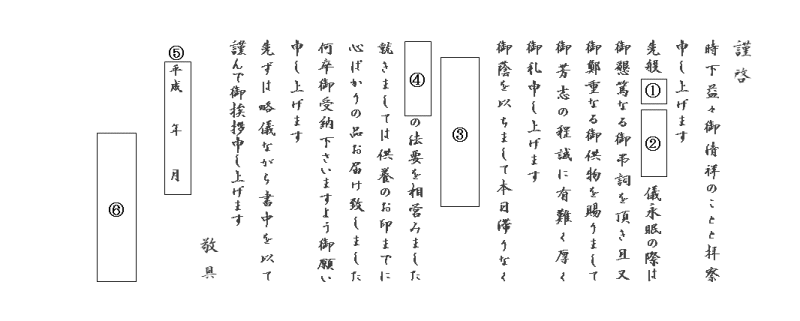 謹啓
時下益々御清祥のことと拝察
申し上げます
先般 ① ② 儀永眠の際は
御懇篤なる御弔詞を頂き且又
御鄭重なる御供物を賜りまして
御芳志の程誠に有難く厚く
御礼申し上げます
御蔭を以ちまして本日滞りなく
③
④ の法要を相営みました
就きましては供養のお印までに
心ばかりの品お届け致しました
何卒御受納下さいますよう御願い
申し上げます
先ずは略儀ながら書中を以て
謹んで御挨拶申し上げます
敬具
⑤ 平成 年 月
⑥